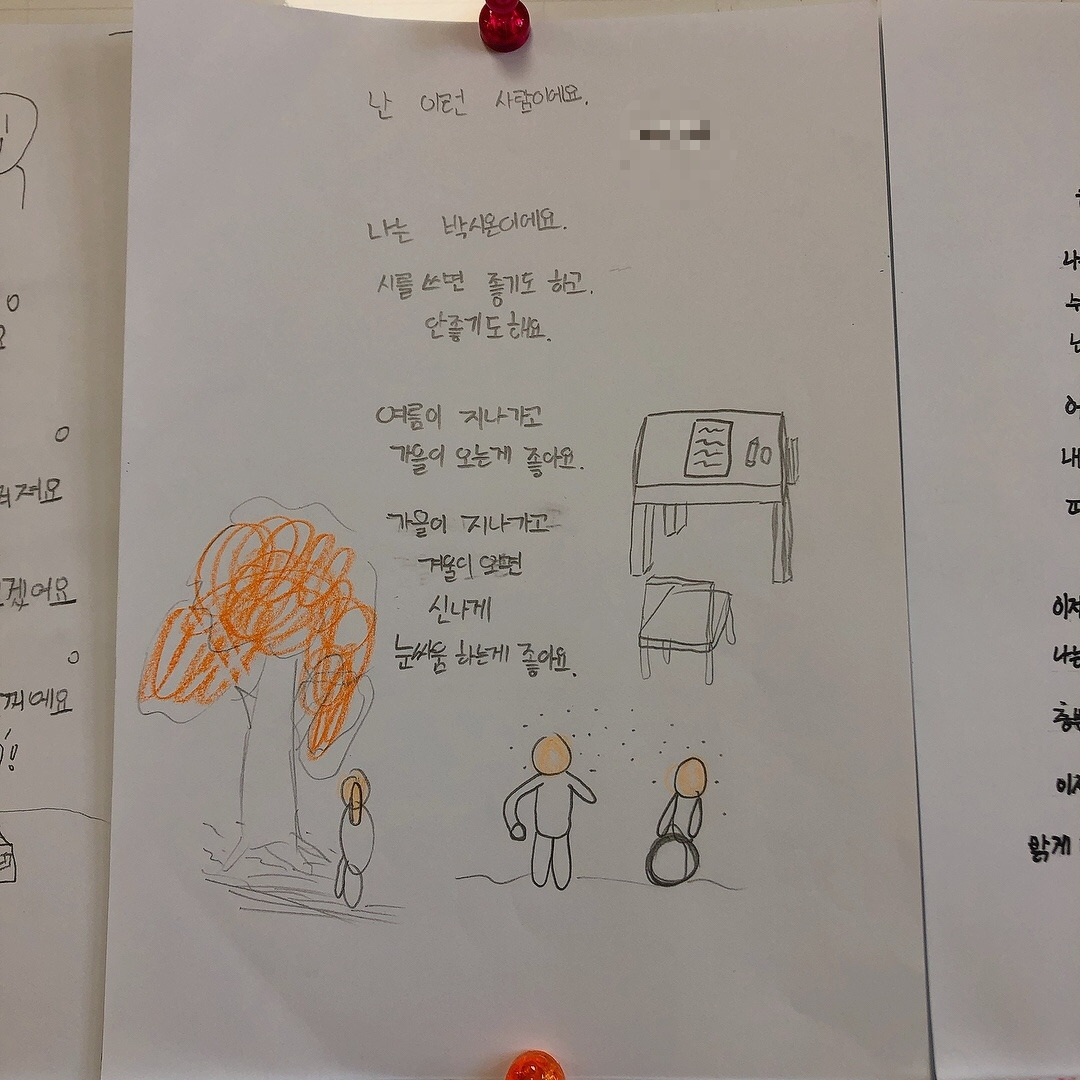 난 이런 사람이에요.
나는 박시온이에요.
시를 쓰면 좋기도 하고.
안좋기도해요.
여름이 지나가고
가을이 오는게 좋아요.
가을이 지나가고
겨울이 오면
신나게
눈싸움 하는게 좋아요.